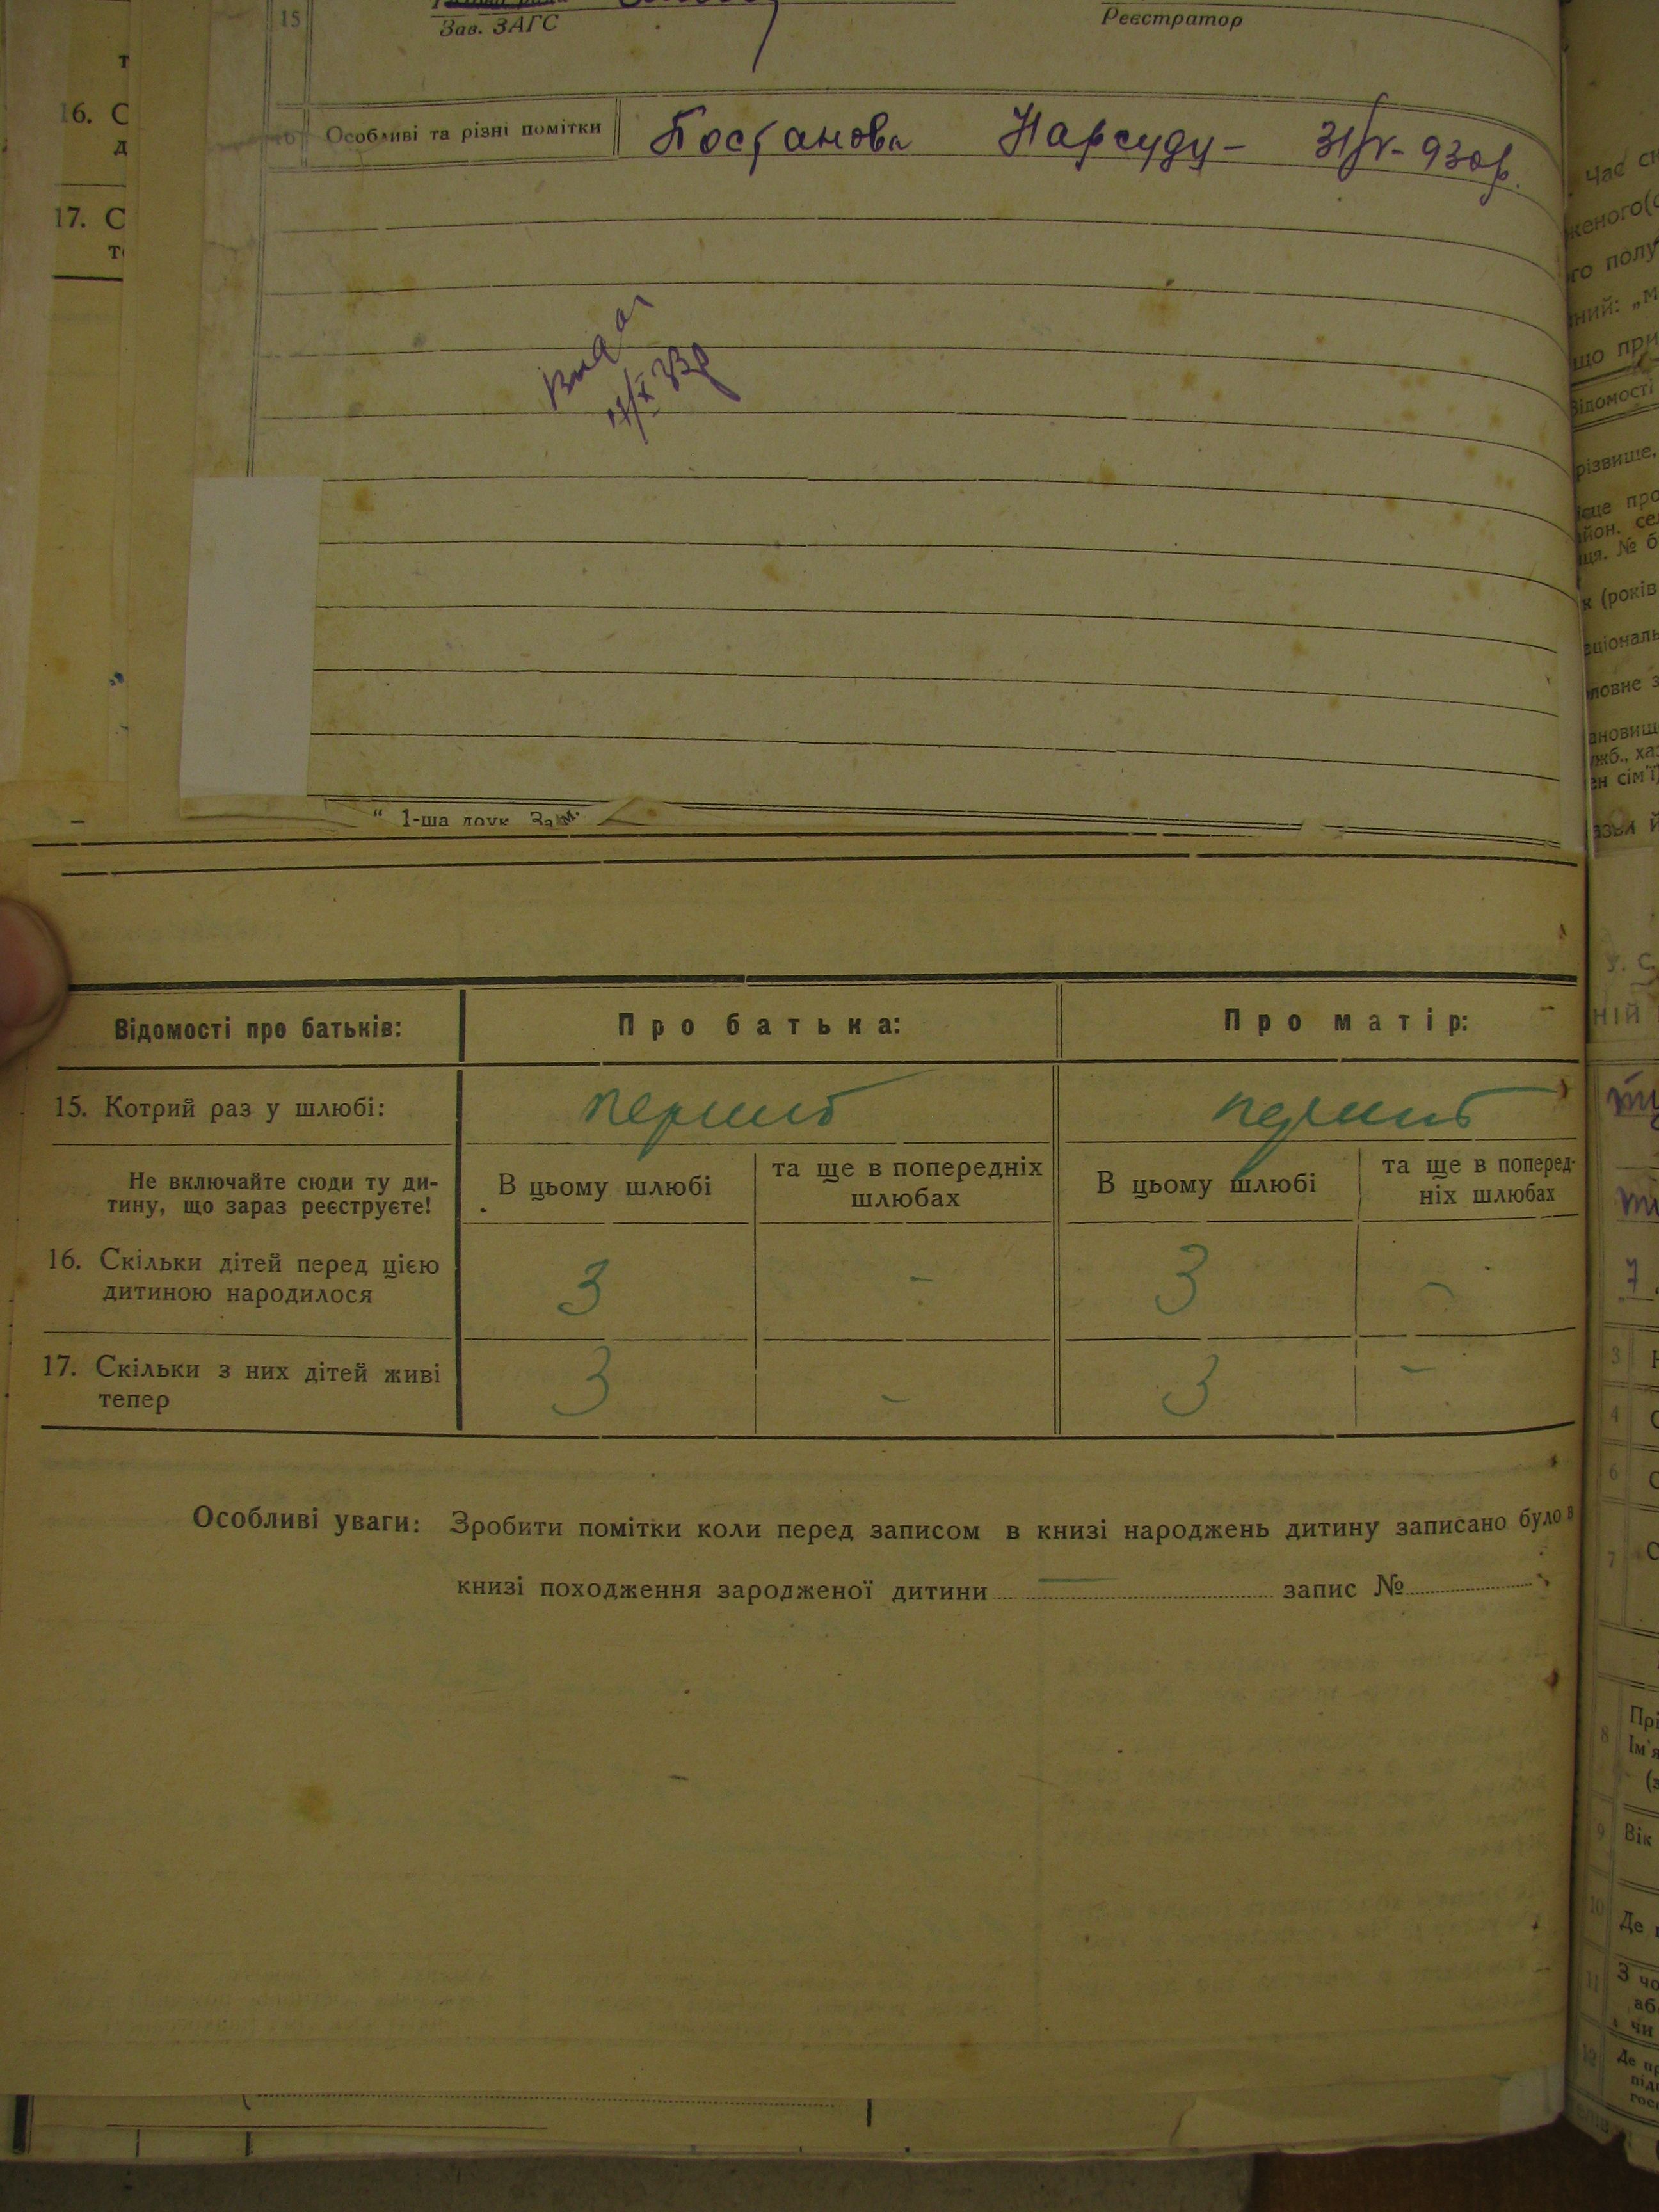 15
Зав. ЗАГС
Реєстратор
16. С
д
17. С
Особливі та різні помітки
Постанова Нарсуду -
" 1-ша друк. Зам.
Час
женого(
го полу
ний: „м
що при
Відомості
різвище,
ісце про
йон. се
№ б
к (років
аціональ
ловне з
ановищ
жб., ха
ен сім'ї
Відомості про батьків: Про батька: Про матір:
15. Котрий раз у шлюбі: перший перший
Не включайте сюди ту ди-
тину, що зараз реєструєте!
В цьому шлюбі
та ще в попередніх
шлюбах
В цьому шлюбі
та ще в поперед-
ніх шлюбах
16. Скільки дітей перед цією
дитиною народилося
3 - 3 -
17. Скільки з них дітей живі
тепер
3 - 3 -
Особливі уваги: Зробити помітки коли перед записом в книзі народжень дитину записано було в
книзі походження зародженої дитини — запис №
ній
7
3
4
6
7
8 Прі
Ім'я
9 Вік
10 Де
11 З чо
аб
чи
12 Де пр
під
гос